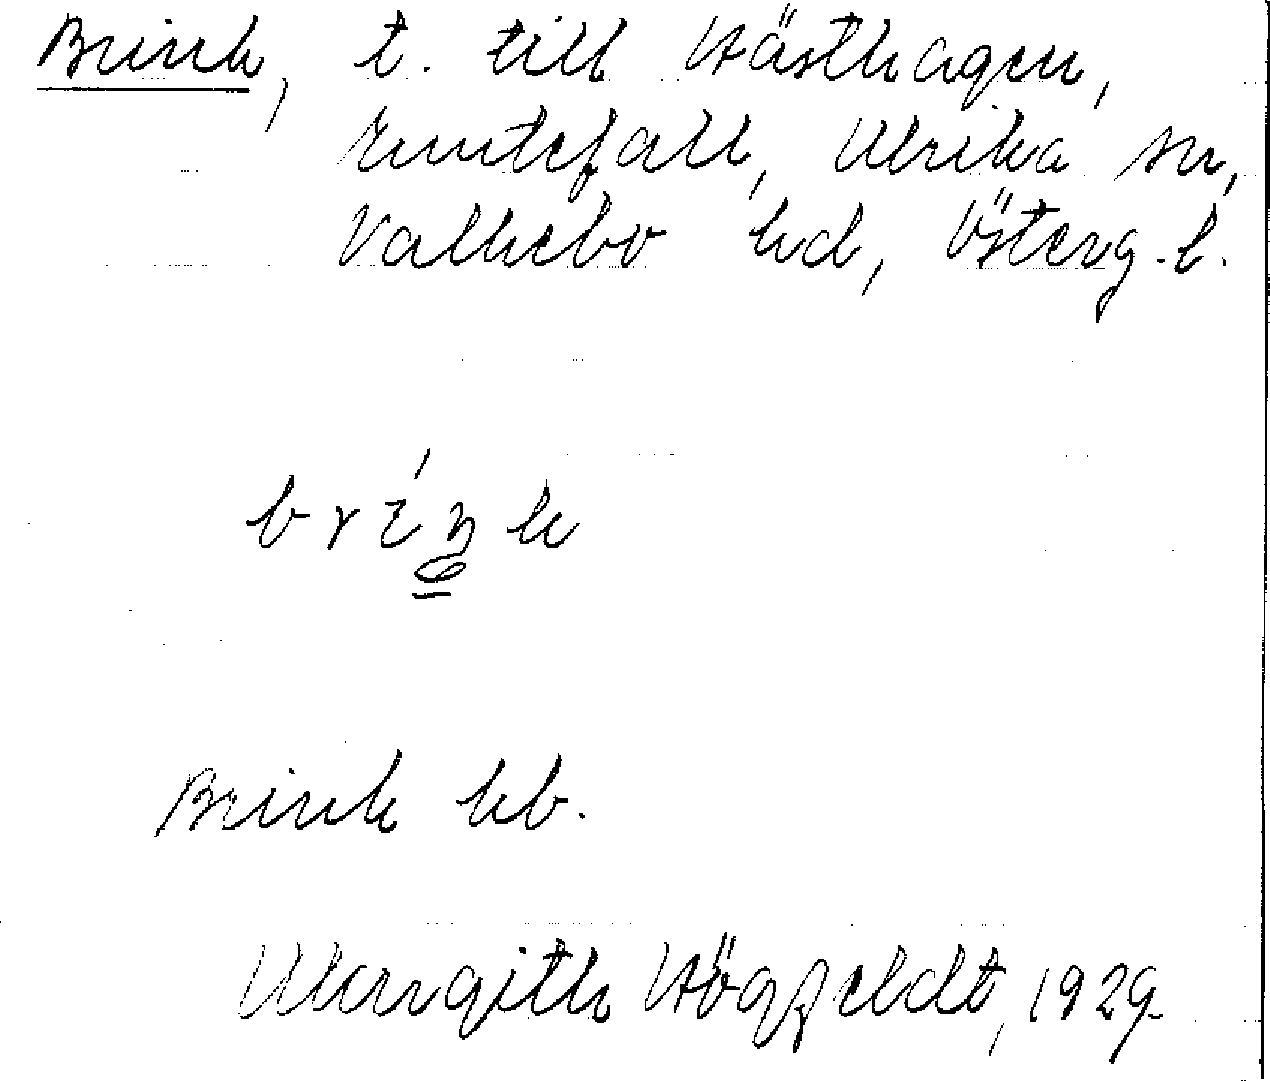 Brink, t. till Hästhagen,
Runtefall, Ulrika sn,
Valkebo hd, Österg. l.
brínk
Brink kb.
Margith Högfeldt, 1929